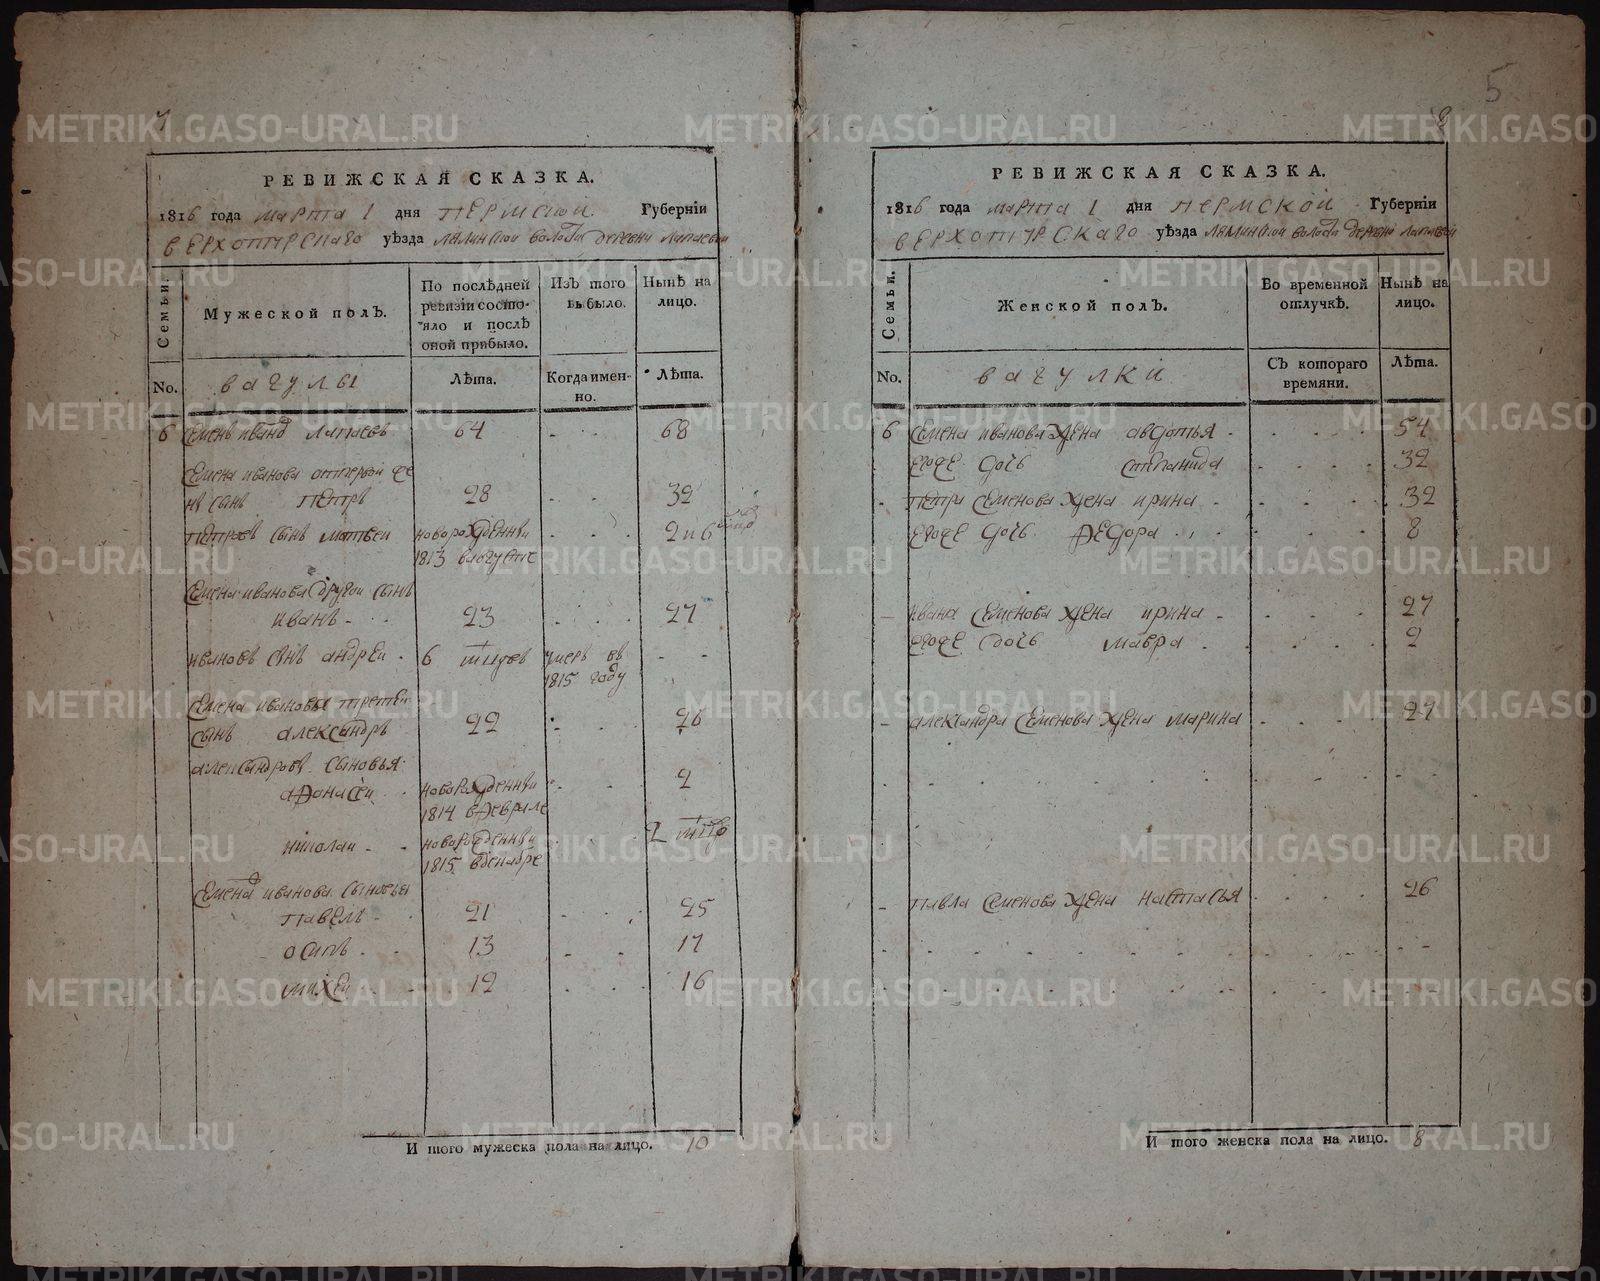 5
7
РЕВИЖСКАЯ СКАЗКА.
1816 года марта 1 дня ПЕРМСКОЙ Губерніи
ВЕРХОТУРСКАГО уѣзда лялинской волости деревни лапаевой
Семьи.
Мужеской полъ.
По послѣдней ревизіи состояло и послѣ оной прибыло.
Изъ того выбыло.
Нынѣ на лицо.
No.
вагулы
Лѣта.
Когда именно.
Лѣта.
6 семенъ иванов лапаевъ 64 68
семена иванова отпервой же
ны сынъ петръ 28 32
петровъ сынъ матвеи новорожденныи 2 и 6
1813 вавгусте
семена иванова другой сынъ
иванъ 23 27
ивановъ сынъ андреи 6 умеръ въ
1815 году
семена иванова третеи
сынъ александръ 22 26
александровы сыновья
афонасеи новорожденныи 2
1814 вфеврале
николаи новорожденныи 2
1815 вдекабре
семена иванова сыновья
павелъ 21 25
осипъ 13 17
михеи 12 16
И того мужеска пола на лицо. 10
8
РЕВИЖСКАЯ СКАЗКА.
1816 года марта 1 дня ПЕРМСКОЙ Губерніи
ВЕРХОТУРСКАГО уѣзда лялинской волости деревни лапаевой
Семьи.
Женской полъ.
Во временной отлучкѣ.
Нынѣ на лицо.
No.
вагулки
Съ котораго времяни.
Лѣта.
6 семена иванова жена авдотья 54
егоже дочь степанида 32
петра семенова жена ирина 32
егоже дочь федора 8
ивана семенова жена ирина 27
егоже дочь мавра 2
александра семенова жена марина 27
павла семенова жена настасья 26
И того женска пола на лицо. 8
METRIKI.GASO-URAL.RU